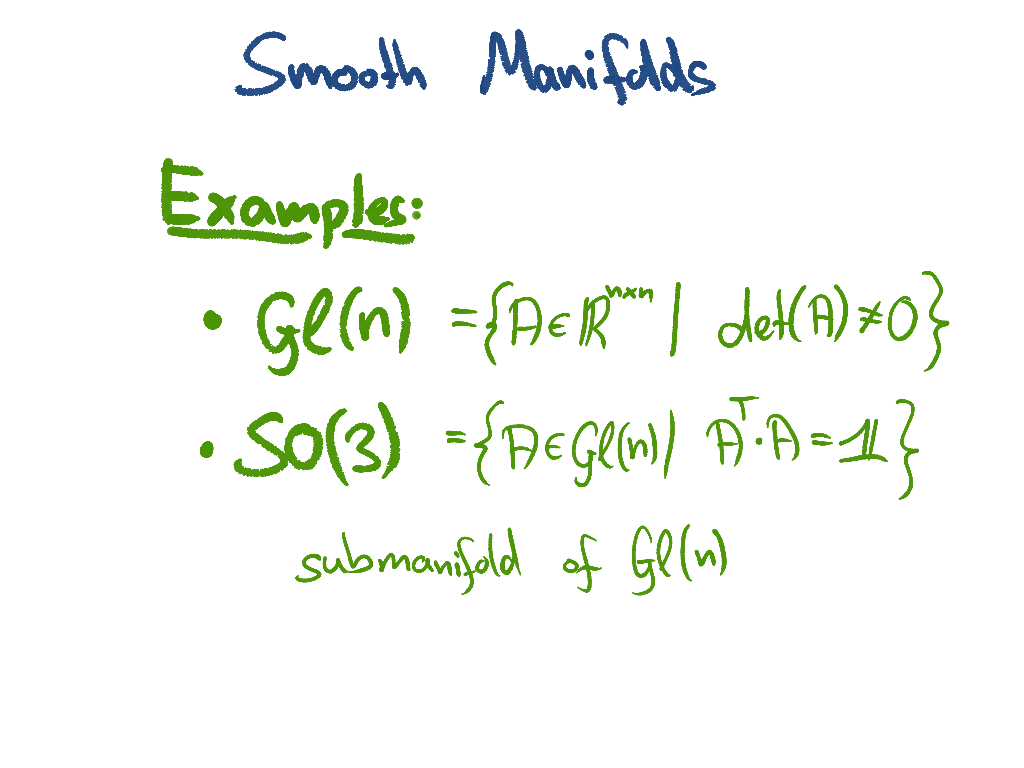 Smooth Manifolds
Examples:
• Gl(n) = {A ∈ ℝⁿˣⁿ | det(A) ≠ 0}
• SO(3) = {A ∈ Gl(n) | Aᵀ · A = 𝟙}
submanifold of Gl(n)